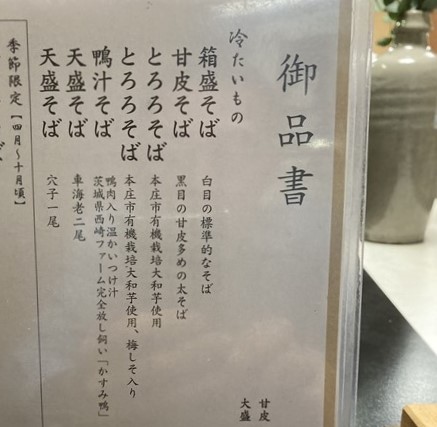 御品書
甘皮
大盛
冷たいもの
箱盛そば 白目の標準的なそば
甘皮そば 黒目の甘皮多めの太そば
とろろそば 本庄市有機栽培大和芋使用
とろろそば 本庄市有機栽培大和芋使用、梅しそ入り
鴨汁そば 鴨肉入り温かいつけ汁
茨城県西崎ファーム完全放し飼い「かすみ鴨」
天盛そば 車海老二尾
天盛そば 穴子一尾
季節限定【四月〜十月頃】